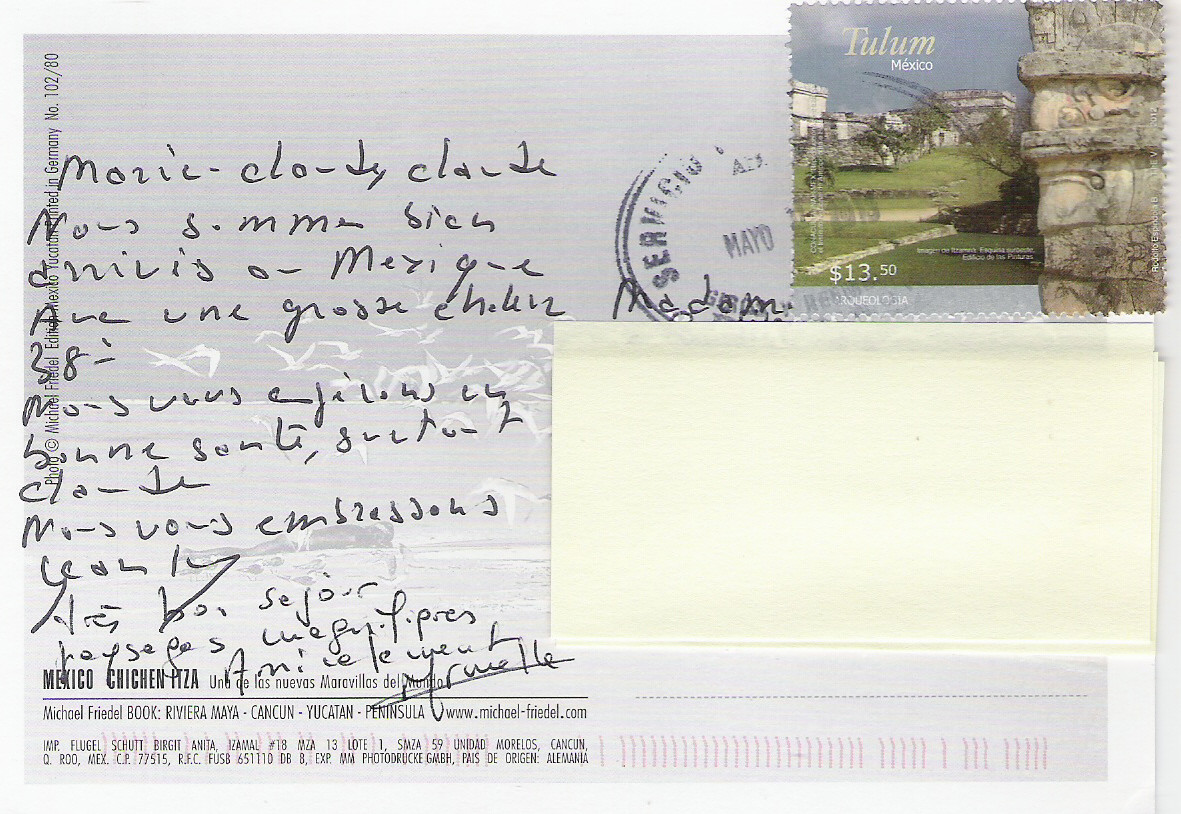 Marie-Claude, Claude
Nous sommes bien
arrivés au Mexique
Avec une grosse chaleur
38°
Nous vous espérons en
bonne santé, surtout
Claude
Nous vous embrassons
très bon séjour
paysages magnifiques
Amicalement
Madame
Photo © Michael Friedel Edition Mexico Yucatan Printed in Germany No. 102/80
Tulum
México
Imagen de Itzamná. Esquina suroeste.
Edificio de las Pinturas
$13.50
ARQUEOLOGÍA
SERVICIO
MAYO
MEXICO CHICHEN ITZA Una de las nuevas Maravillas del Mundo
Michael Friedel BOOK: RIVIERA MAYA - CANCUN - YUCATAN - PENINSULA www.michael-friedel.com
IMP. FLUGEL SCHUTT BIRGIT ANITA, IZAMAL #18 MZA 13 LOTE 1, SMZA 59 UNIDAD MORELOS, CANCUN,
Q. ROO, MEX. C.P. 77515, R.F.C. FUSB 651110 DB 8, EXP. MM PHOTODRUCKE GMBH, PAIS DE ORIGEN: ALEMANIA